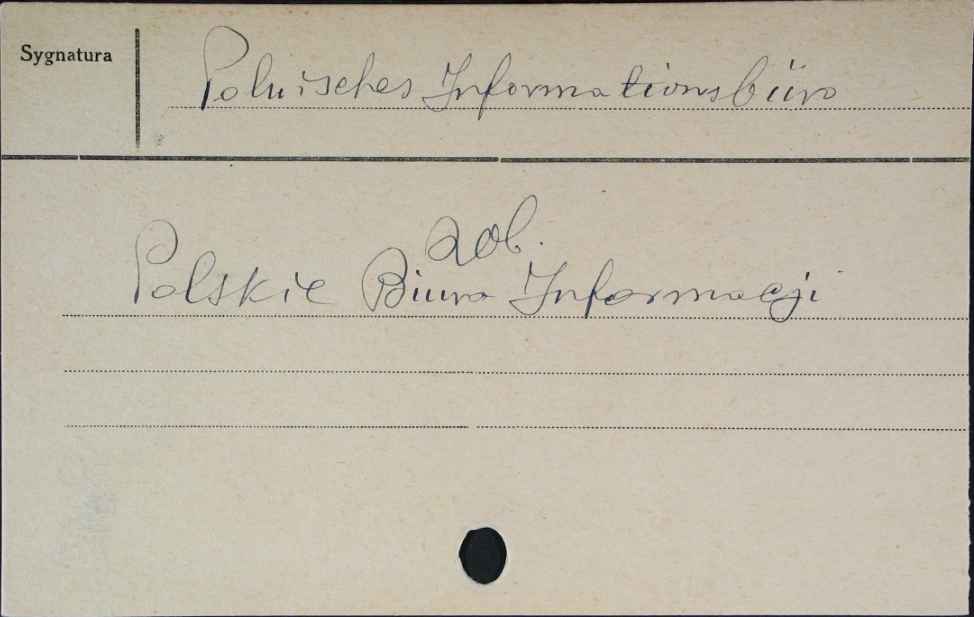 Sygnatura
Polnisches Informationsbüro
zob.
Polskie Biuro Informacji